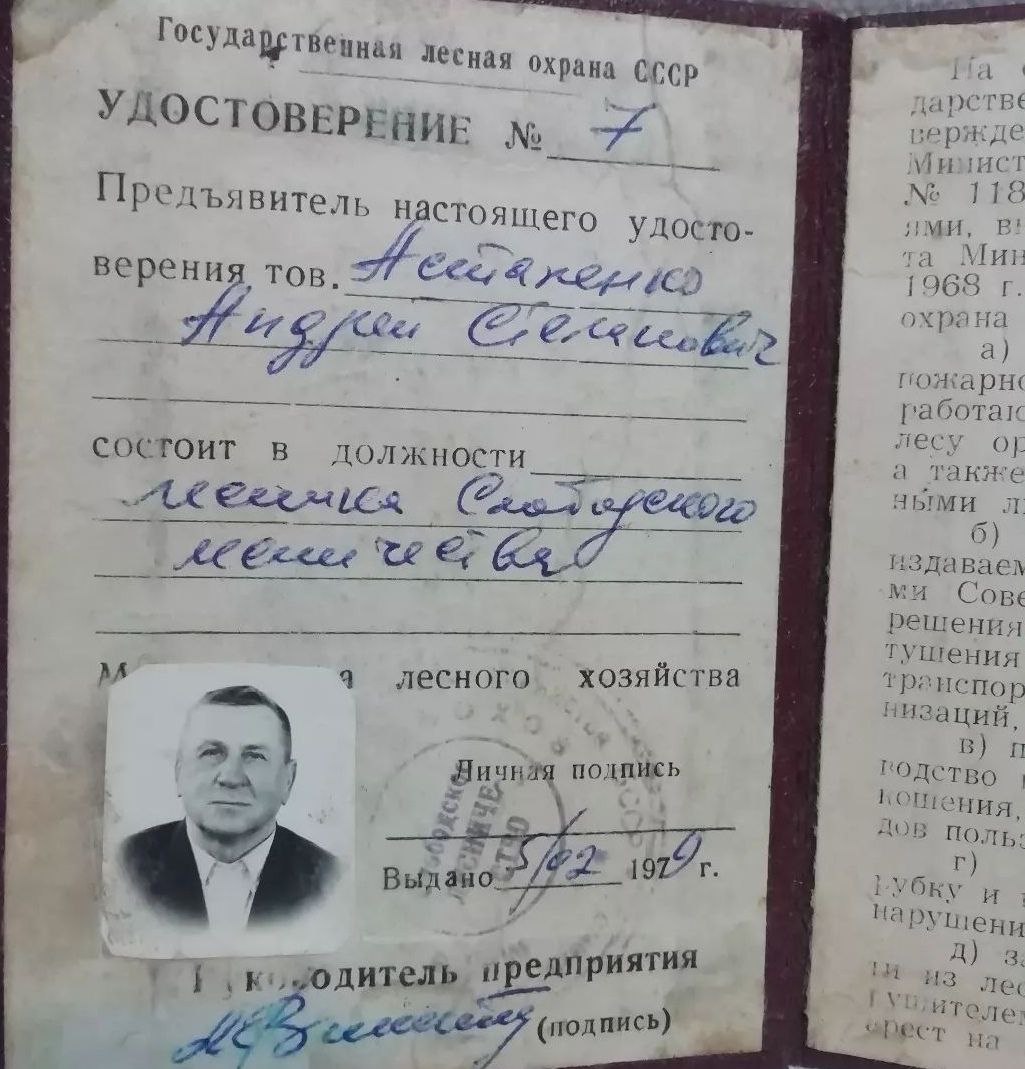 Государственная лесная охрана СССР
УДОСТОВЕРЕНИЕ № 7
Предъявитель настоящего удосто-
верения тов. Астапенко
Андрей Степанович
состоит в должности
лесника Слободского
лесничества
лесного хозяйства
Личная подпись
Выдано 5/02 1979 г.
Слободское
ЛЕСНИЧЕ
СТВО
Руководитель предприятия
(подпись)
На
дарстве
вержде
Минист
№ 118
ями, в
та Мин
1968 г.
охрана
а)
пожарно
работаю
лесу ор
а также
ными л
б)
издаваем
ми Сове
решения
тушения
транспор
низаций,
в) п
водство
кошения,
дов польз
г)
рубку и
нарушени
д) за
ти из лес
рушителем
арест на